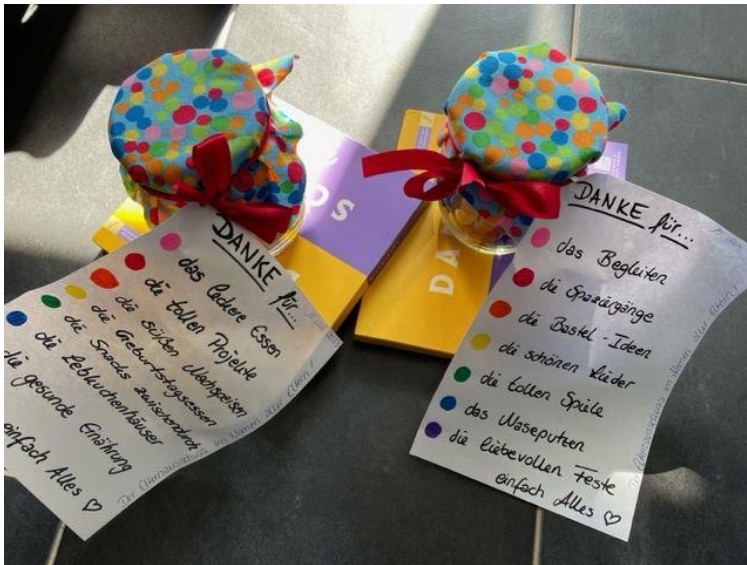 DANKE für...
das leckere Essen
die tollen Projekte
die süßen Nachspeisen
die Geburtstagsessen
die Snacks zwischendurch
die Lebkuchenhäuser
die gesunde Ernährung
einfach Alles ♡
Der Elternausschuss im Namen aller Eltern!
DANKE für...
das Begleiten
die Spaziergänge
die Bastel-Ideen
die schönen Lieder
die tollen Spiele
das Naseputzen
die liebevollen Feste
einfach Alles ♡
Der Elternausschuss im Namen aller Eltern!
OS
DA